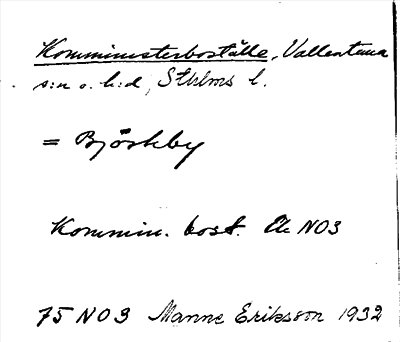 Komministerboställe, Vallentuna
s:n o. h:d, Sthlms l.
= Björkby
Kommin. bost. Ek NO3
75 NO3 Manne Eriksson 1932